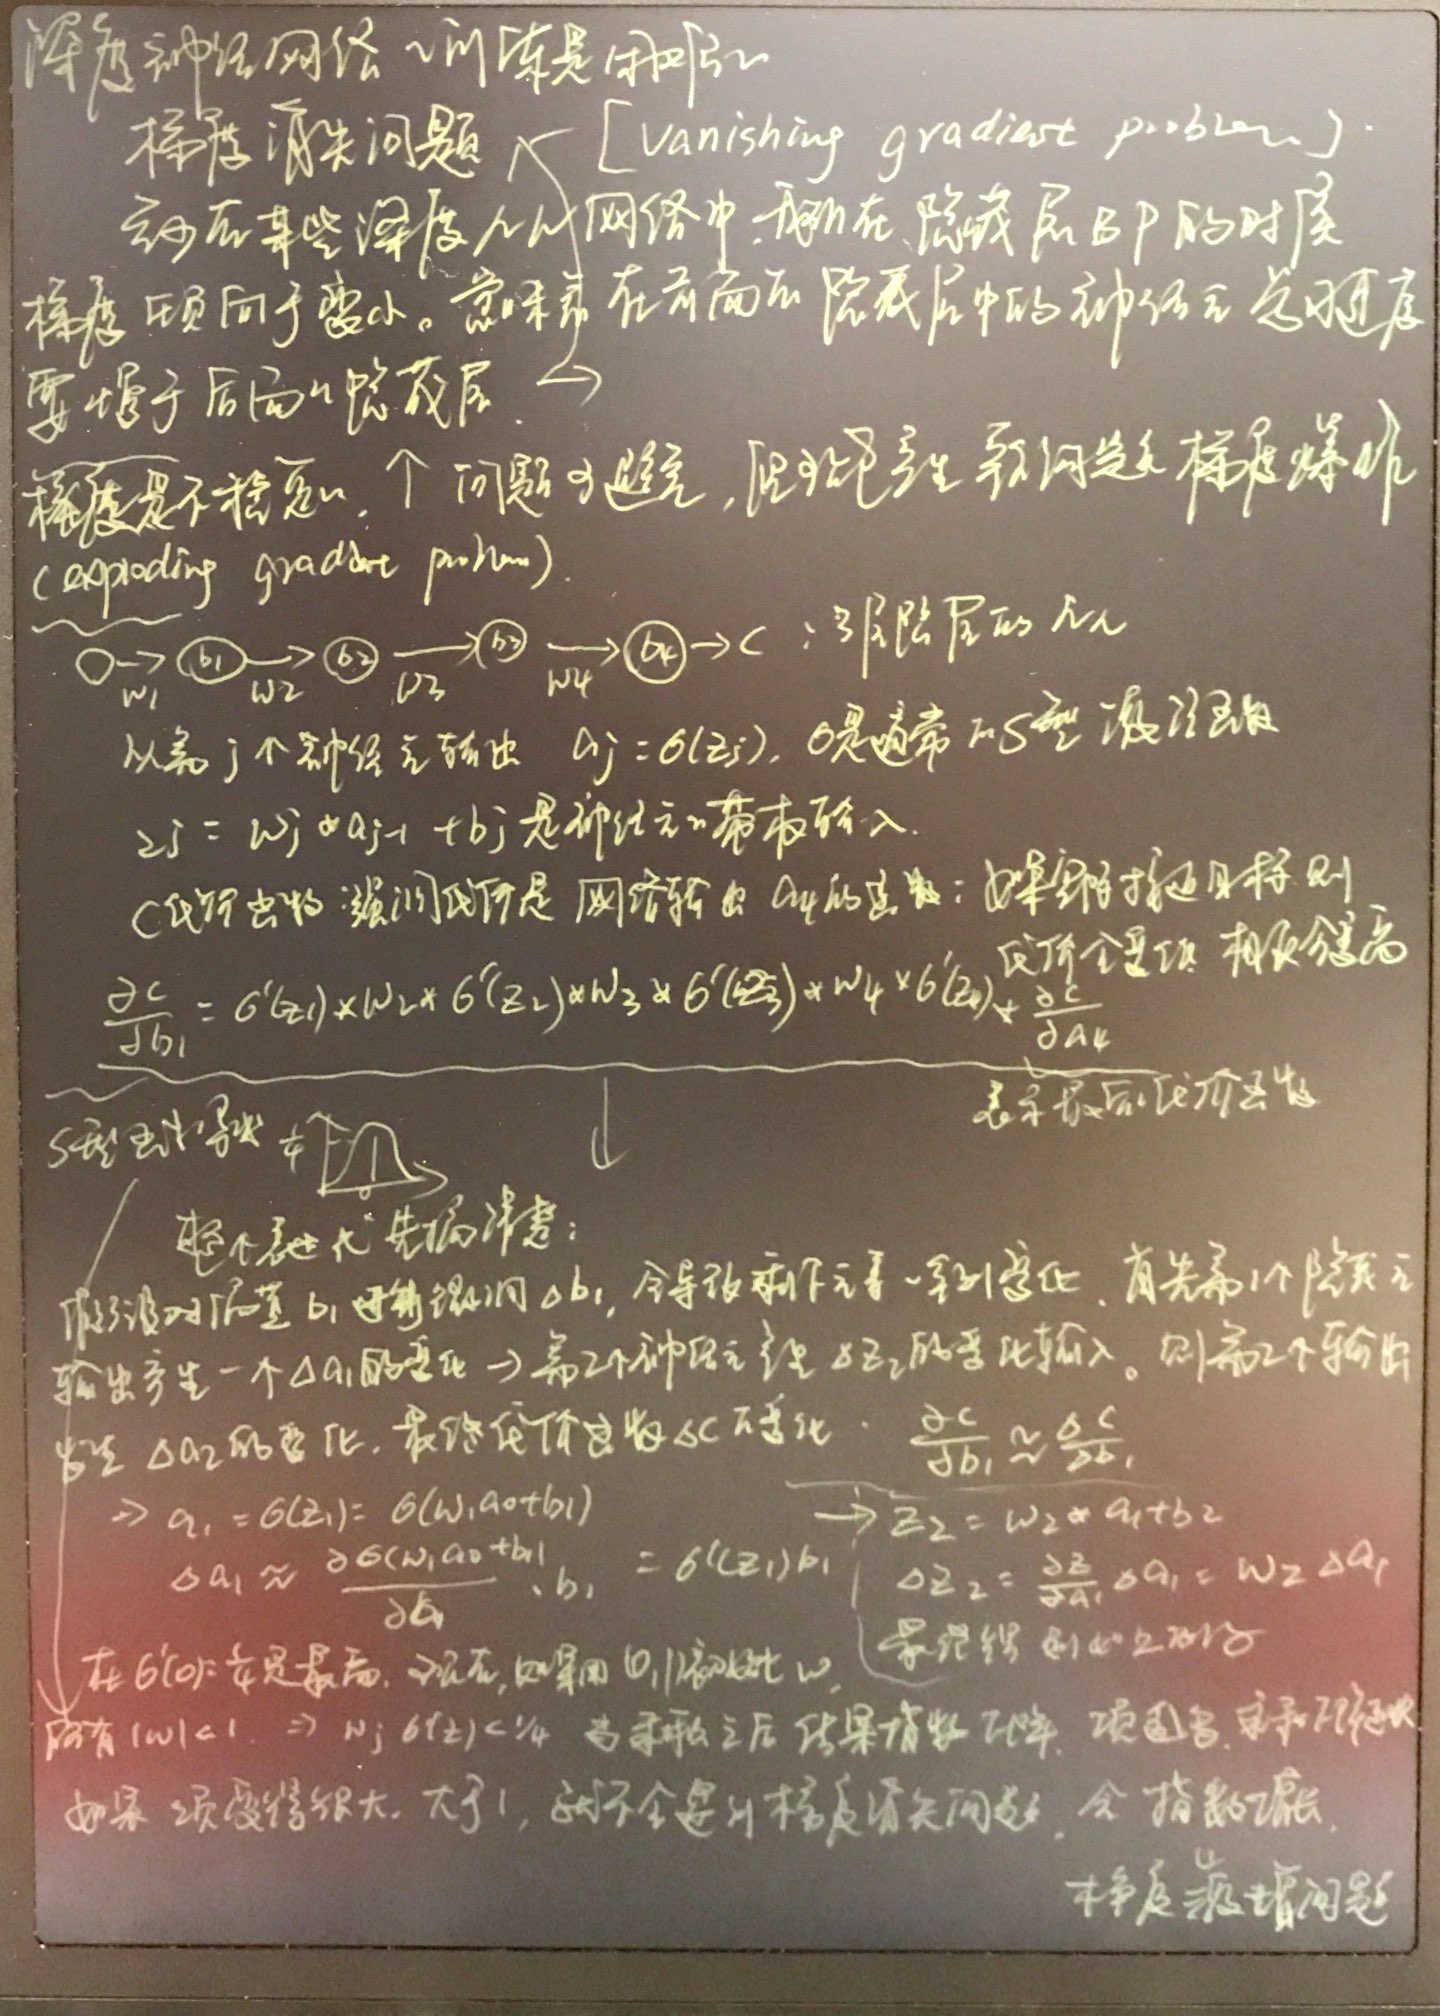 深度神经网络训练是困难的
梯度消失问题 [vanishing gradient problem].
在某些深度NN网络中,我们在隐藏层BP的时候
梯度倾向于变小。意味着在前面的隐藏层中的神经元学习速度
要慢于后面的隐藏层.
梯度是不稳定的, 个问题可避免,但会产生 梯度爆炸
(exploding gradient problem).
b1 b2 b3 b4 → C : 3层隐层的NN
w1 w2 w3 w4
从第j个神经元输出 aj = σ(zj), σ是通常的S型激活函数
zj = wj * aj-1 + bj 是神经元的带权输入.
C代价函数 强调代价是网络输出a4的函数: 如果实际接近目标则
代价会变低 相反会变高
∂C/∂b1 = σ'(z1) * w2 * σ'(z2) * w3 * σ'(z3) * w4 * σ'(z4) * ∂C/∂a4
表示最后的代价函数
S型函数导数 1/4 0
整个表达式 :
假设对偏置b1进行微调Δb1, 会导致 元素一系列变化. 首先第1个隐藏元
输出产生一个Δa1的变化 → 第2个神经元产生Δz2的变化输入。则第2个输出
发生Δa2的变化. 最终代价函数ΔC的变化. ∂C/∂b1 ≈ ΔC/Δb1
→ a1 = σ(z1) = σ(w1a0+b1)
Δa1 ≈ ∂σ(w1a0+b1)/∂b1 · b1 = σ'(z1)b1
→ z2 = w2 * a1 + b2
Δz2 = ∂z/∂a1 Δa1 = w2 Δa1
最终得到如上
在σ'(0)=1/4是最高. 现在,如果用(0,1)初始化w,
所有|w|<1 ⇒ wj σ'(z) < 1/4 当乘积之后结果指数下降. 项越多,
如果项变得很大. 大于1, 就不会遇到梯度消失问题, 会指数增长.
梯度激增问题